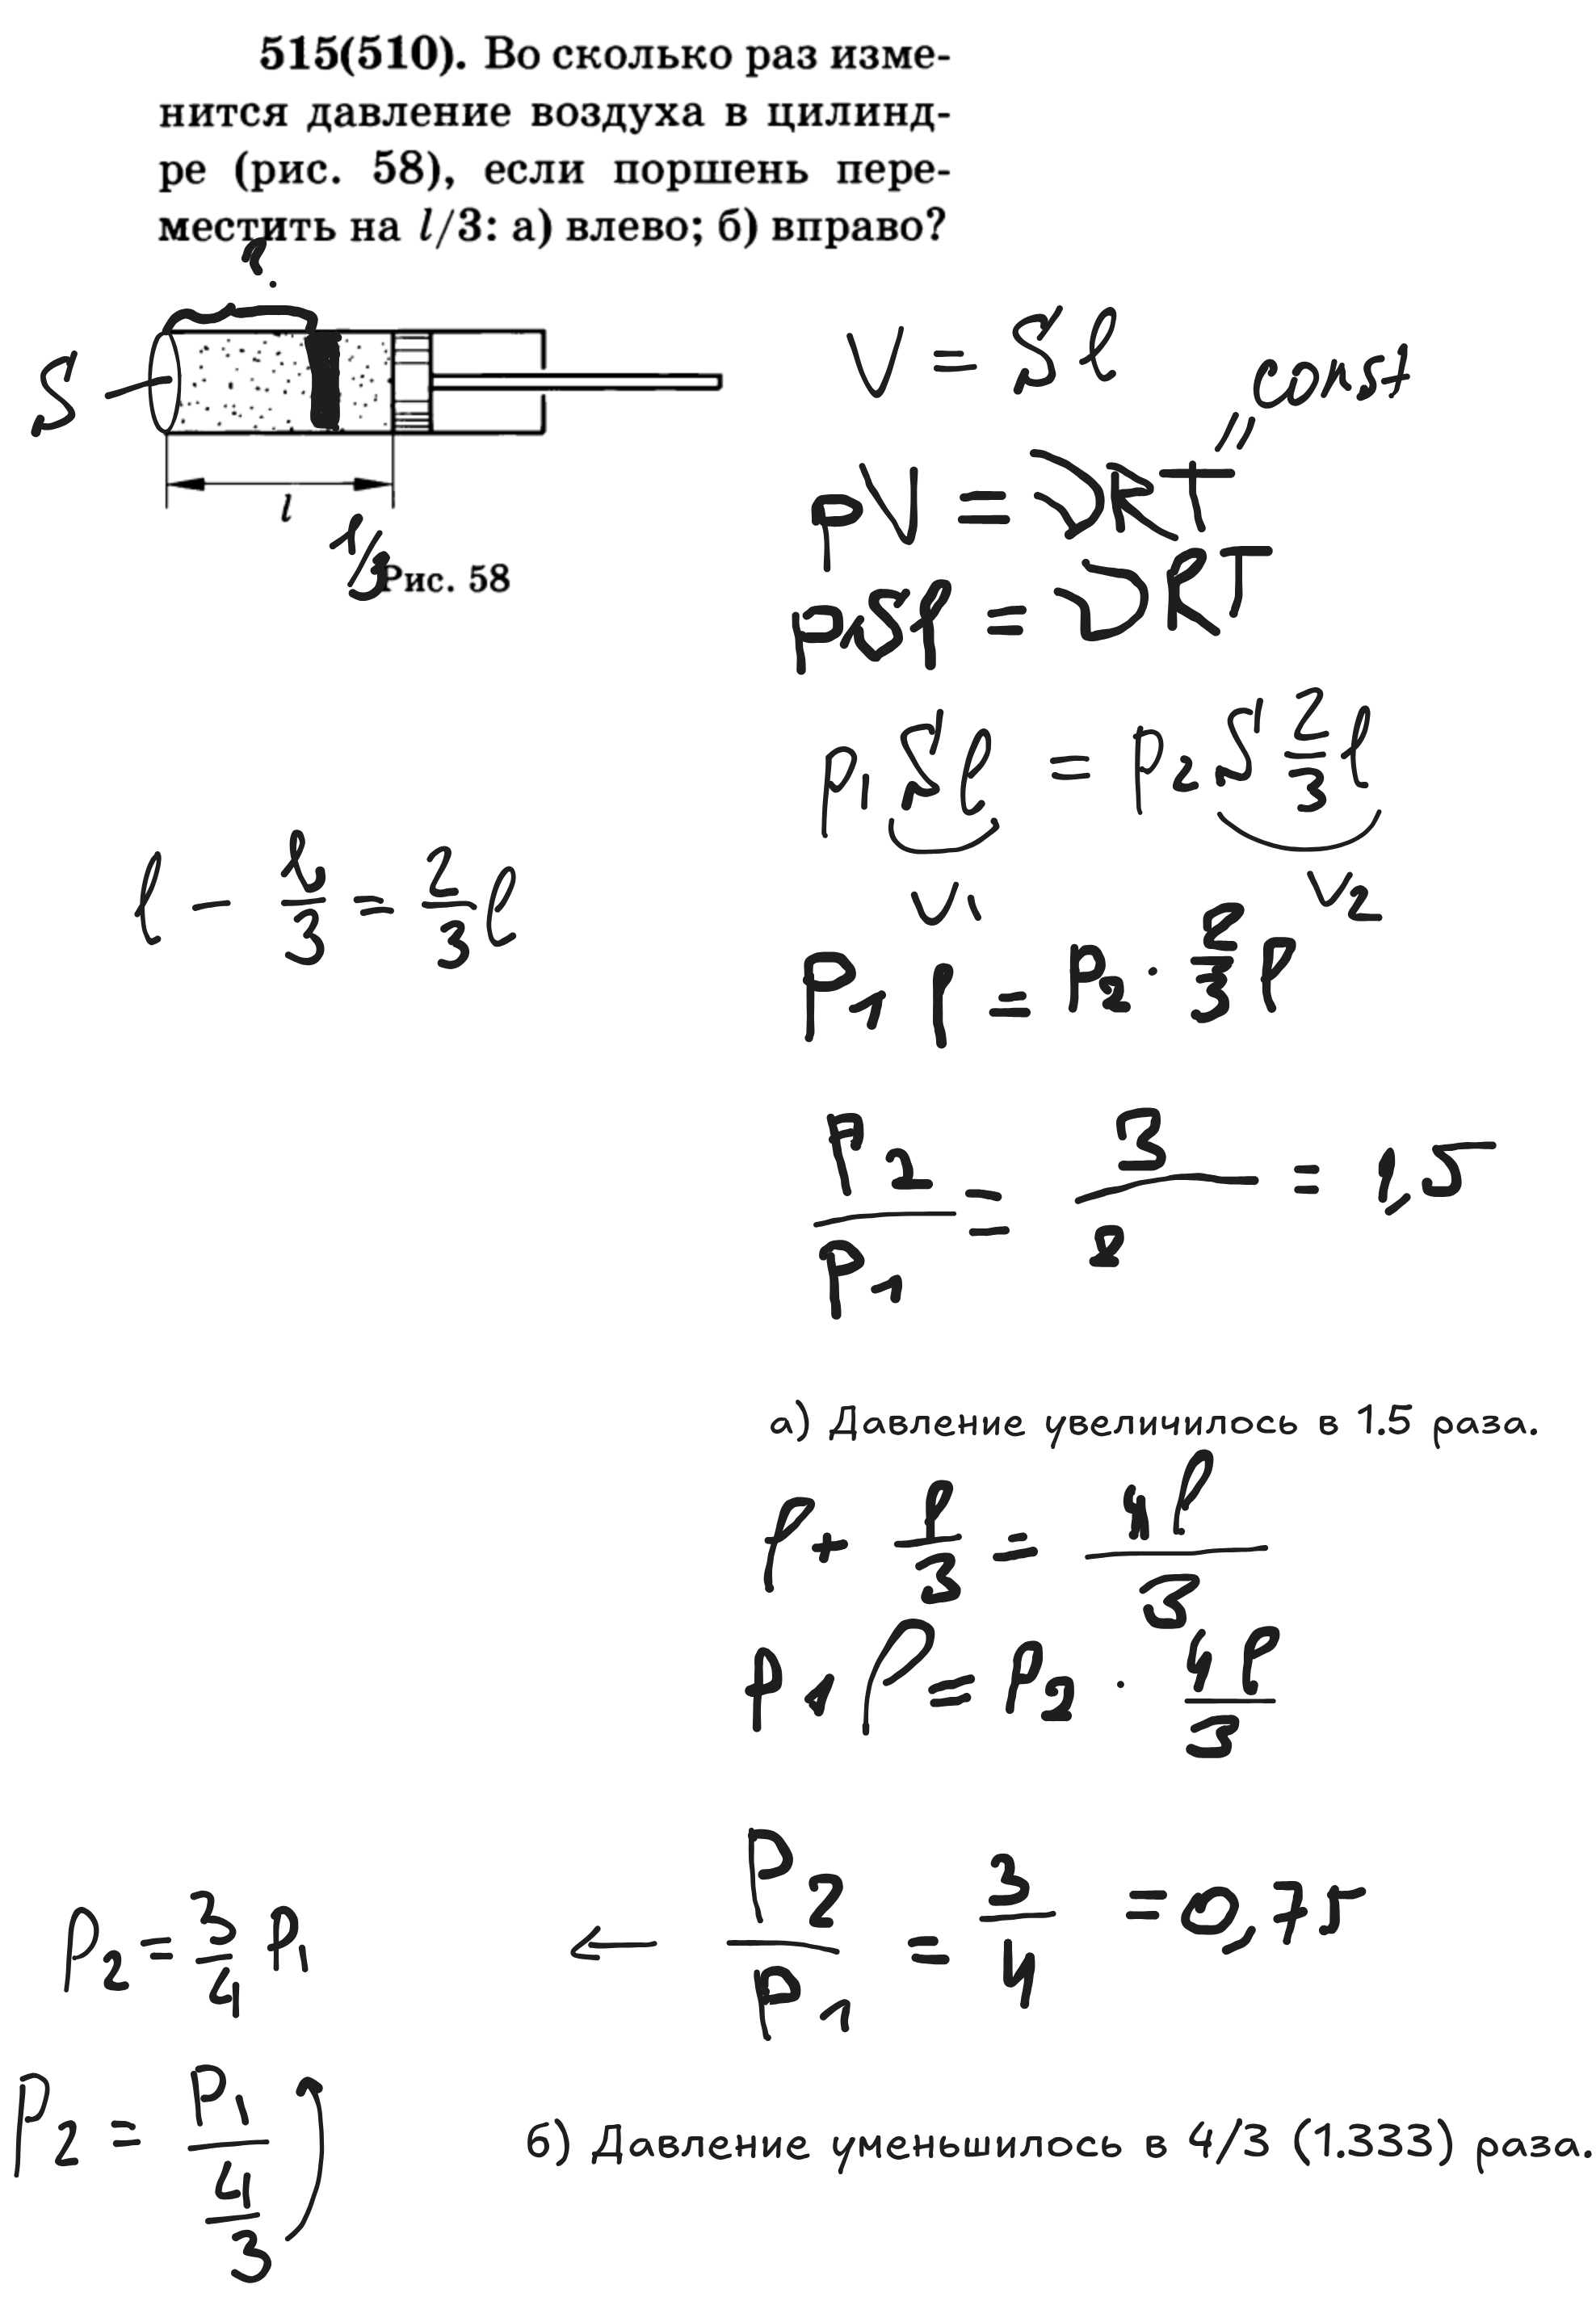 515(510). Во сколько раз изме-
нится давление воздуха в цилинд-
ре (рис. 58), если поршень пере-
местить на l/3: а) влево; б) вправо?
?
S
l
1/3
Рис. 58
V = Sl
const
pV = νRT
pSl = νRT
p1 Sl = p2 S 2/3 l
V1 V2
l - l/3 = 2/3 l
P1 l = P2 · 2/3 l
P2/P1 = 3/2 = 1,5
а) Давление увеличилось в 1.5 раза.
l + l/3 = 4l/3
P1 l = P2 · 4l/3
P2/P1 = 3/4 = 0,75
←
P2 = 3/4 P1
P2 = P1/(4/3)
б) Давление уменьшилось в 4/3 (1.333) раза.